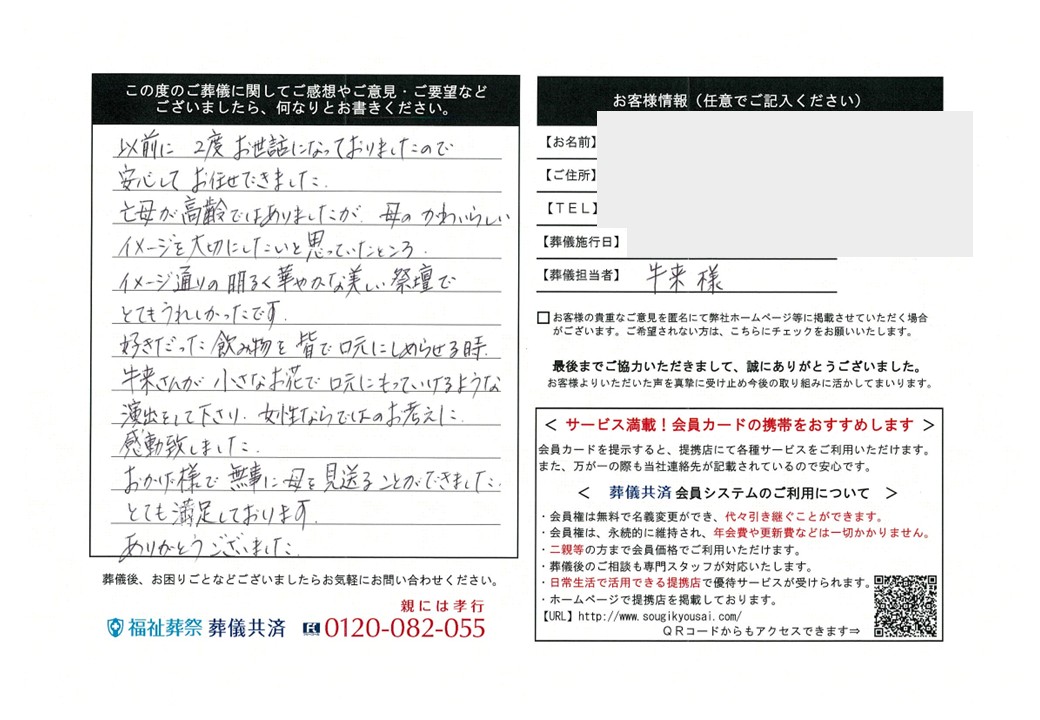 この度のご葬儀に関してご感想やご意見・ご要望など
ございましたら、何なりとお書きください。
以前に 2度 お世話になっておりましたので
安心して お任せできました.
亡母が高齢ではありましたが、母の かわいらしい
イメージを大切にしたいと思っていたところ.
イメージ通りの 明るく華やかな美しい祭壇で
とてもうれしかったです.
好きだった 飲み物を 皆で口元にしめらせる時.
牛来さんが 小さなお花で口元にもっていけるような
演出をして下さり. 女性ならではのお考えに.
感動致しました.
おかげ様で 無事に母を見送ることができました.
とても満足しております.
ありがとうございました.
葬儀後、お困りごとなどございましたらお気軽にお問い合わせください。
親には孝行
福祉葬祭 葬儀共済 0120-082-055
お客様情報（任意でご記入ください）
【お名前】
【ご住所】
【ＴＥＬ】
【葬儀施行日】
【葬儀担当者】 牛来 様
□お客様の貴重なご意見を匿名にて弊社ホームページ等に掲載させていただく場合
がございます。ご希望されない方は、こちらにチェックをお願いいたします。
最後までご協力いただきまして、誠にありがとうございました。
お客様よりいただいた声を真摯に受け止め今後の取り組みに活かしてまいります。
＜ サービス満載！会員カードの携帯をおすすめします ＞
会員カードを提示すると、提携店にて各種サービスをご利用いただけます。
また、万が一の際も当社連絡先が記載されているので安心です。
＜ 葬儀共済 会員システムのご利用について ＞
・会員権は無料で名義変更ができ、代々引き継ぐことができます。
・会員権は、永続的に維持され、年会費や更新費などは一切かかりません。
・二親等の方まで会員価格でご利用いただけます。
・葬儀後のご相談も専門スタッフが対応いたします。
・日常生活で活用できる提携店で優待サービスが受けられます。
・ホームページで提携店を掲載しております。
【URL】http://www.sougikyousai.com/
ＱＲコードからもアクセスできます⇒